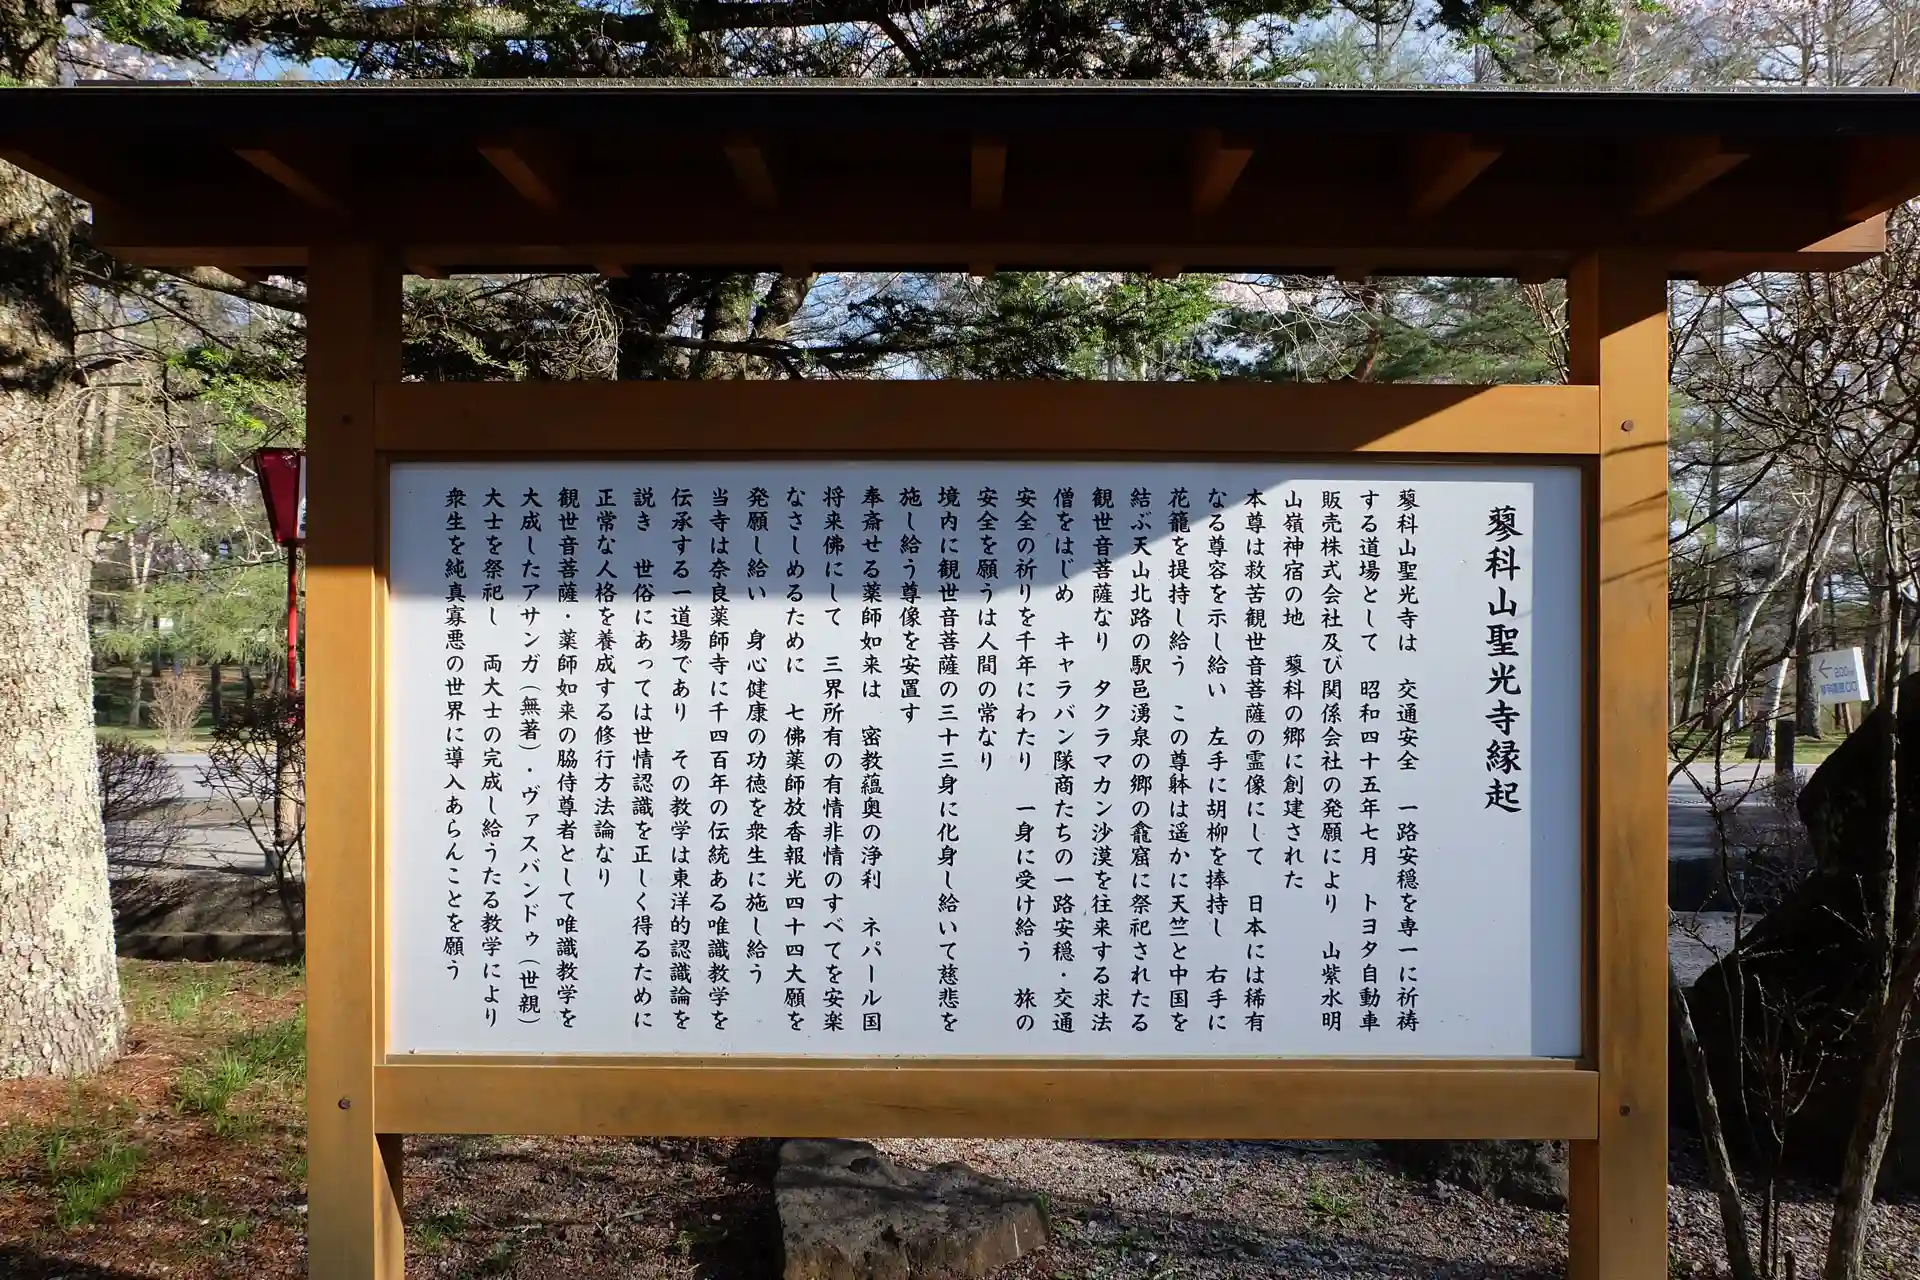 蓼科山聖光寺縁起
蓼科山聖光寺は 交通安全 一路安穏を専一に祈祷
する道場として 昭和四十五年七月 トヨタ自動車
販売株式会社及び関係会社の発願により 山紫水明
山嶺神宿の地 蓼科の郷に創建された
本尊は救苦観世音菩薩の霊像にして 日本には稀有
なる尊容を示し給い 左手に胡柳を捧持し 右手に
花籠を提持し給う この尊躰は遥かに天竺と中国を
結ぶ天山北路の駅邑湧泉の郷の龕窟に祭祀されたる
観世音菩薩なり タクラマカン沙漠を往来する求法
僧をはじめ キャラバン隊商たちの一路安穏・交通
安全の祈りを千年にわたり 一身に受け給う 旅の
安全を願うは人間の常なり
境内に観世音菩薩の三十三身に化身し給いて慈悲を
施し給う尊像を安置す
奉斎せる薬師如来は 密教蘊奥の浄利 ネパール国
将来佛にして 三界所有の有情非情のすべてを安楽
なさしめるために 七佛薬師放香報光四十四大願を
発願し給い 身心健康の功徳を衆生に施し給う
当寺は奈良薬師寺に千四百年の伝統ある唯識教学を
伝承する一道場であり その教学は東洋的認識論を
説き 世俗にあっては世情認識を正しく得るために
正常な人格を養成する修行方法論なり
観世音菩薩・薬師如来の脇侍尊者として唯識教学を
大成したアサンガ（無著）・ヴァスバンドゥ（世親）
大士を祭祀し 両大士の完成し給うたる教学により
衆生を純真寡悪の世界に導入あらんことを願う